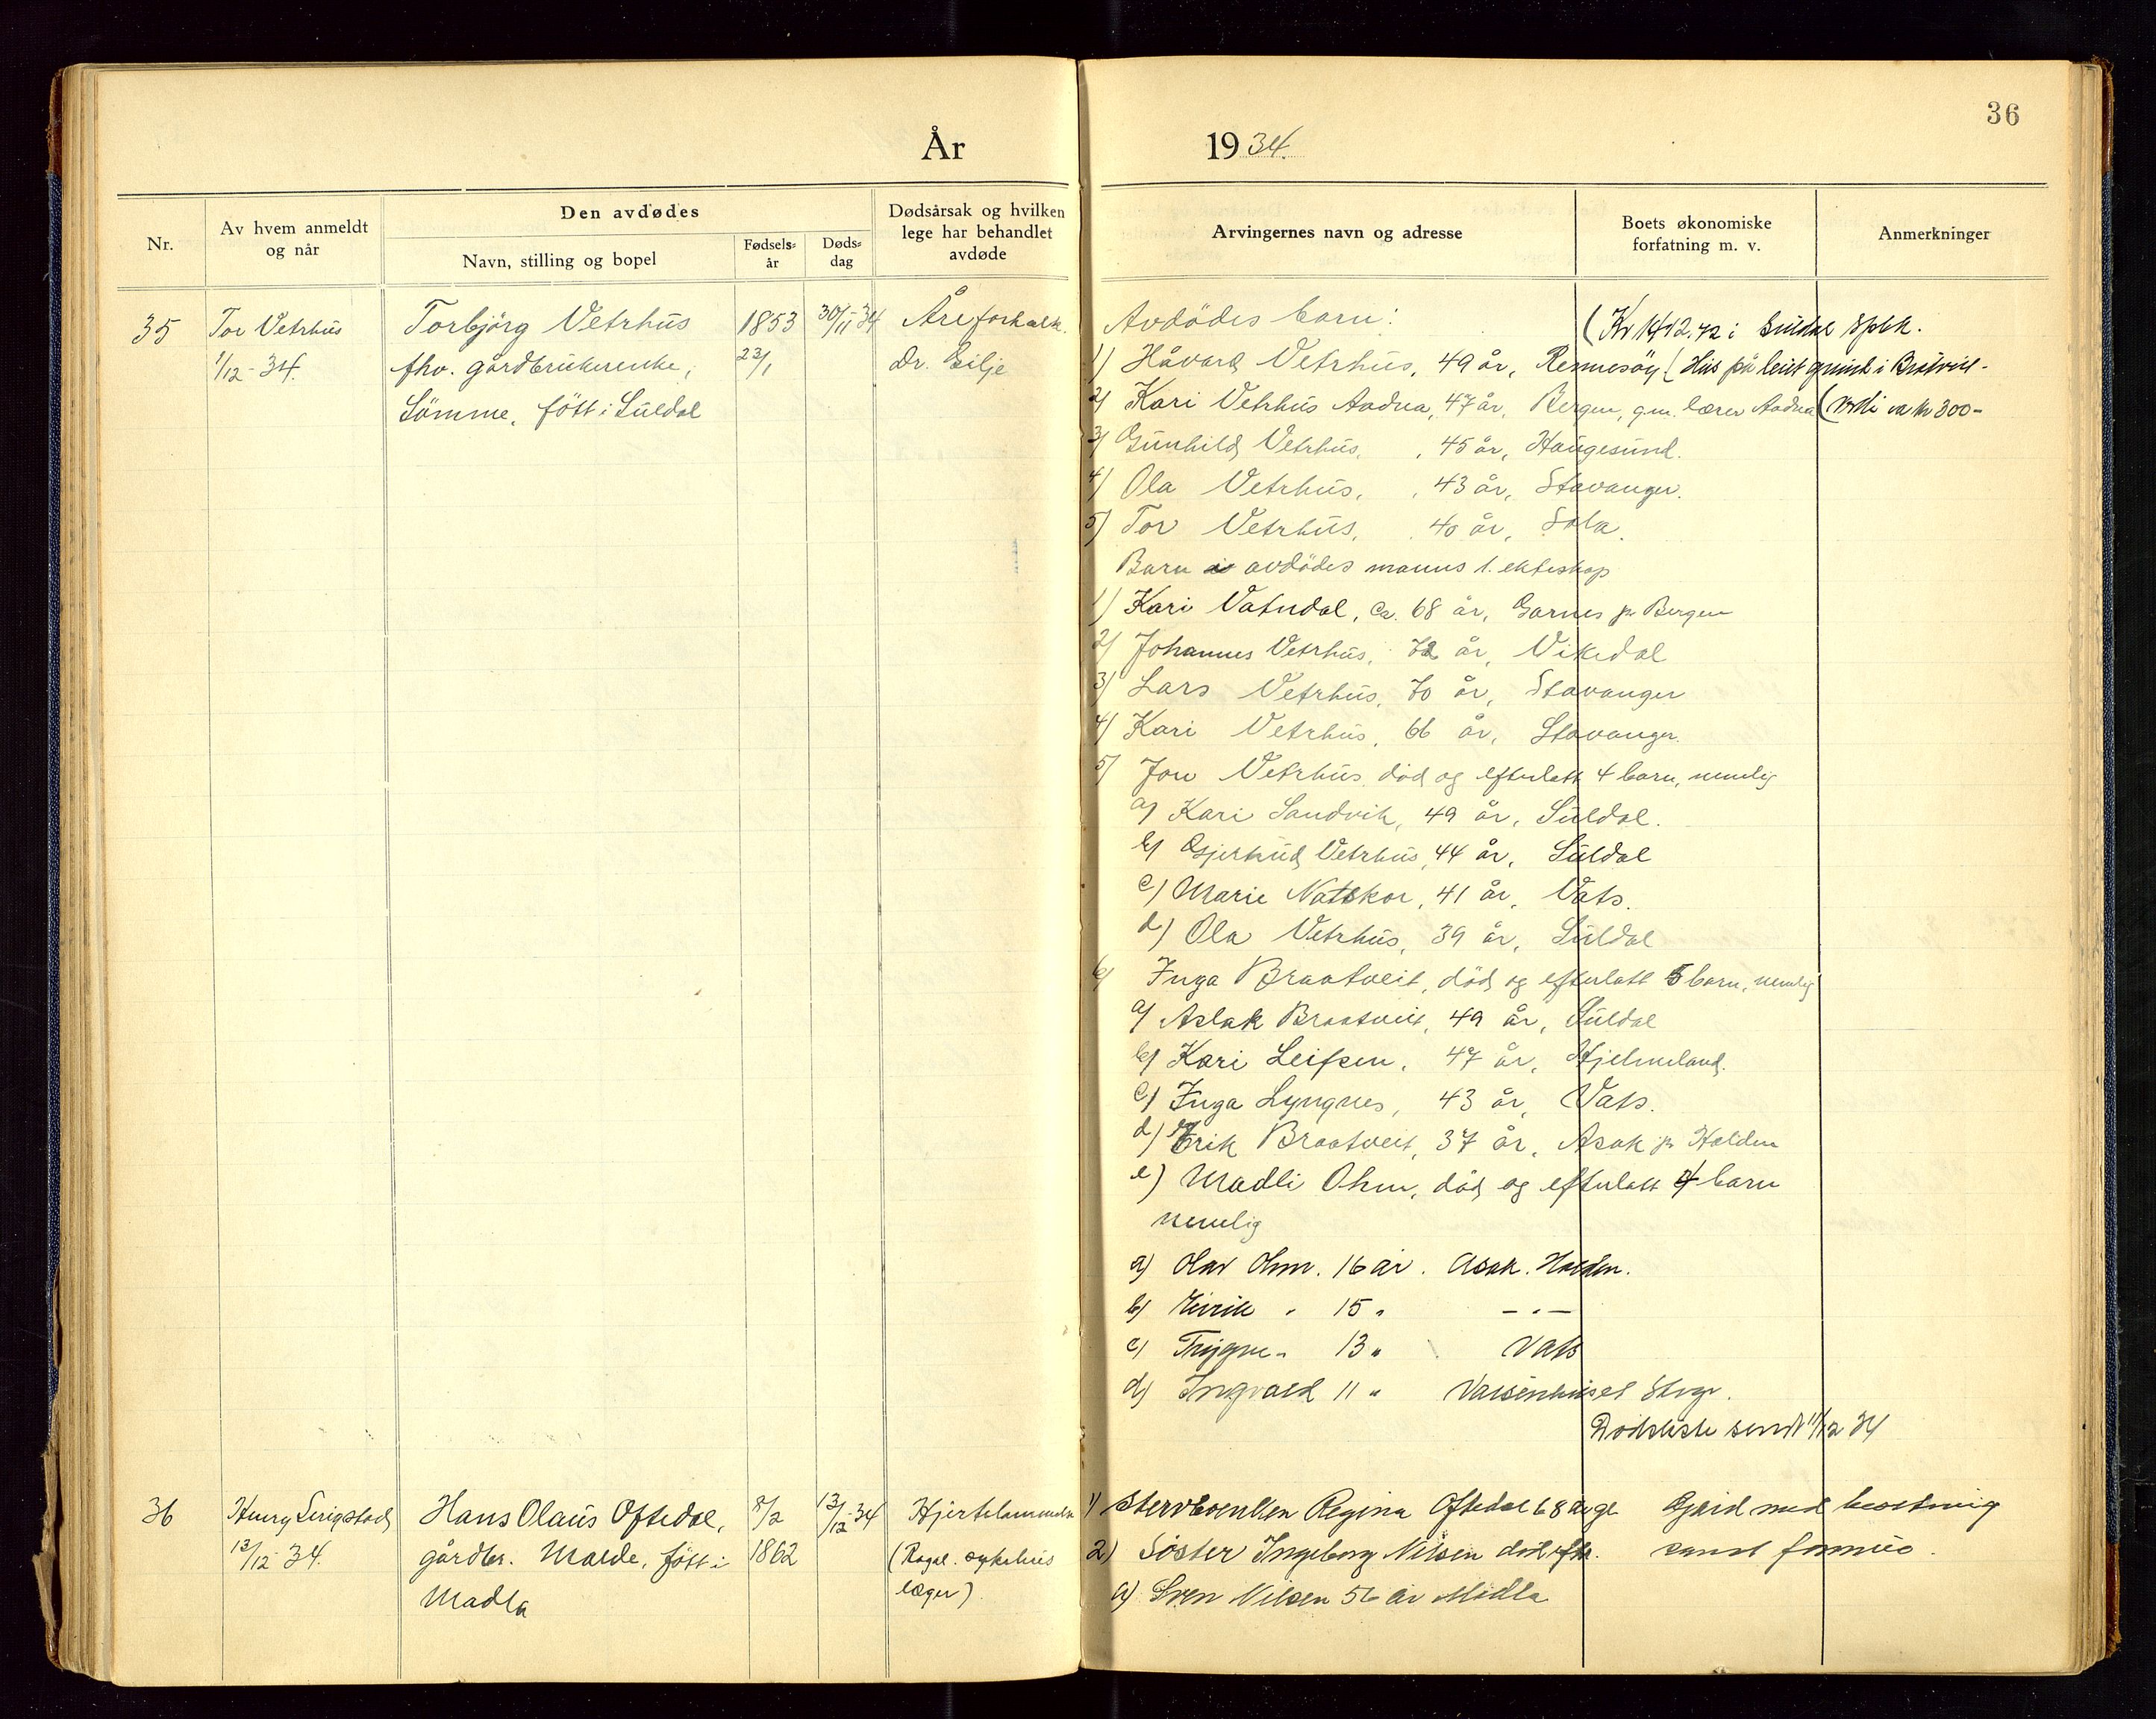 36
År 1934.
Nr.
Av hvem anmeldt og når
Den avdødes
Navn, stilling og bopel
Fødsels-år
Døds-dag
Dødsårsak og hvilken lege har behandlet avdøde
Arvingernes navn og adresse
Boets økonomiske forfatning m. v.
Anmerkninger
35
Tor Vetrhus
1/12-34.
Torbjörg Vetrhus
fhv. gårdbrukerenke,
Sömme, fött i Suldal
1853
23/1
30/11-34
Åreforkalk.
Dr. Eilje
Avdödes barn:
1) Håvard Vetrhus, 49 år, Rennesöy
2) Kari Vetrhus Aadna, 47 år, Bergen, g.m. lærer Aadna
3) Gunhild Vetrhus, 45 år, Haugesund.
4) Ola Vetrhus, 43 år, Stavanger.
5) Tor Vetrhus, 40 år, Sola.
(Kr 1412.72 i Suldal Spbk.
(Hus på leiet grund i Bråtveit-
(verdi ca kr 300-
Barn i avdödes manns 1. ekteskap
1) Kari Vatndal, ca. 68 år, Garnes pr Bergen
2) Johannes Vetrhus, 72 år, Vikedal
3) Lars Vetrhus, 70 år, Stavanger
4) Kari Vetrhus, 66 år, Stavanger.
5) Jon Vetrhus, död og efterlatt 4 barn, nemlig
a) Kari Sandvik, 49 år, Suldal.
b) Gjertrud Vetrhus, 44 år, Suldal
c) Marie Natskor, 41 år, Vats.
d) Ola Vetrhus, 39 år, Suldal
6) Inga Braatveit, död og efterlatt 5 barn, nemlig
a) Aslak Braatveit, 49 år, Suldal
b) Kari Leifsen, 47 år, Hjelmeland.
c) Inga Lyngnes, 43 år, Vats.
d) Erik Braatveit, 37 år, Asak pr Halden
e) Madli Ohm, död og efterlatt 4 barn
nemlig
a) Olav Ohm. 16 år. Asak. Halden.
b) Eirik " 15 " — " —
c) Trygve " 13 " Vats
d) Ingvald 11 " Vaisenhuset Stvgr.
Dødsliste sendt 11/12 34
36
Henry Serigstad
13/12 34.
Hans Olaus Oftedal,
gårdbr. Malde, fött i
Madla
8/2
1862
13/12-34
Hjertelammelse
(Rogal. sykehus
læger)
1) Stervboenken Regina Oftedal 68 år gl.
2) Søster Ingeborg Nilsen död efter.
a) Sven Nilsen 56 år Madla
Gjård med besetning
samt formue.